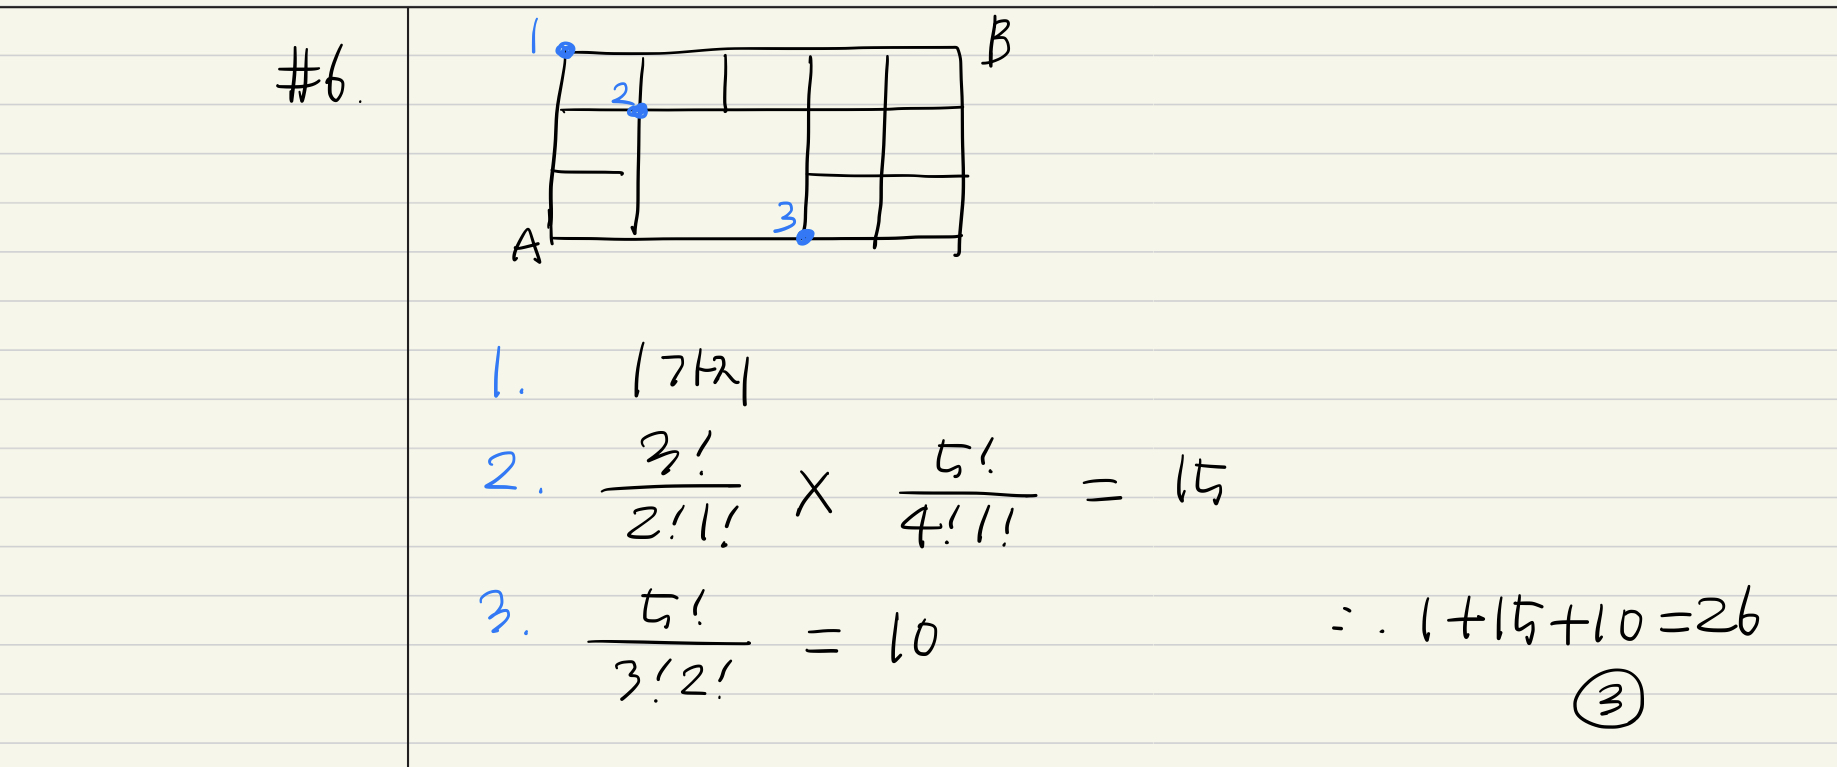 #6.
1 B
2
3
A
1. 1가지
2. 3!/2!1! × 5!/4!1! = 15
3. 5!/3!2! = 10 ∴ 1+15+10=26
③